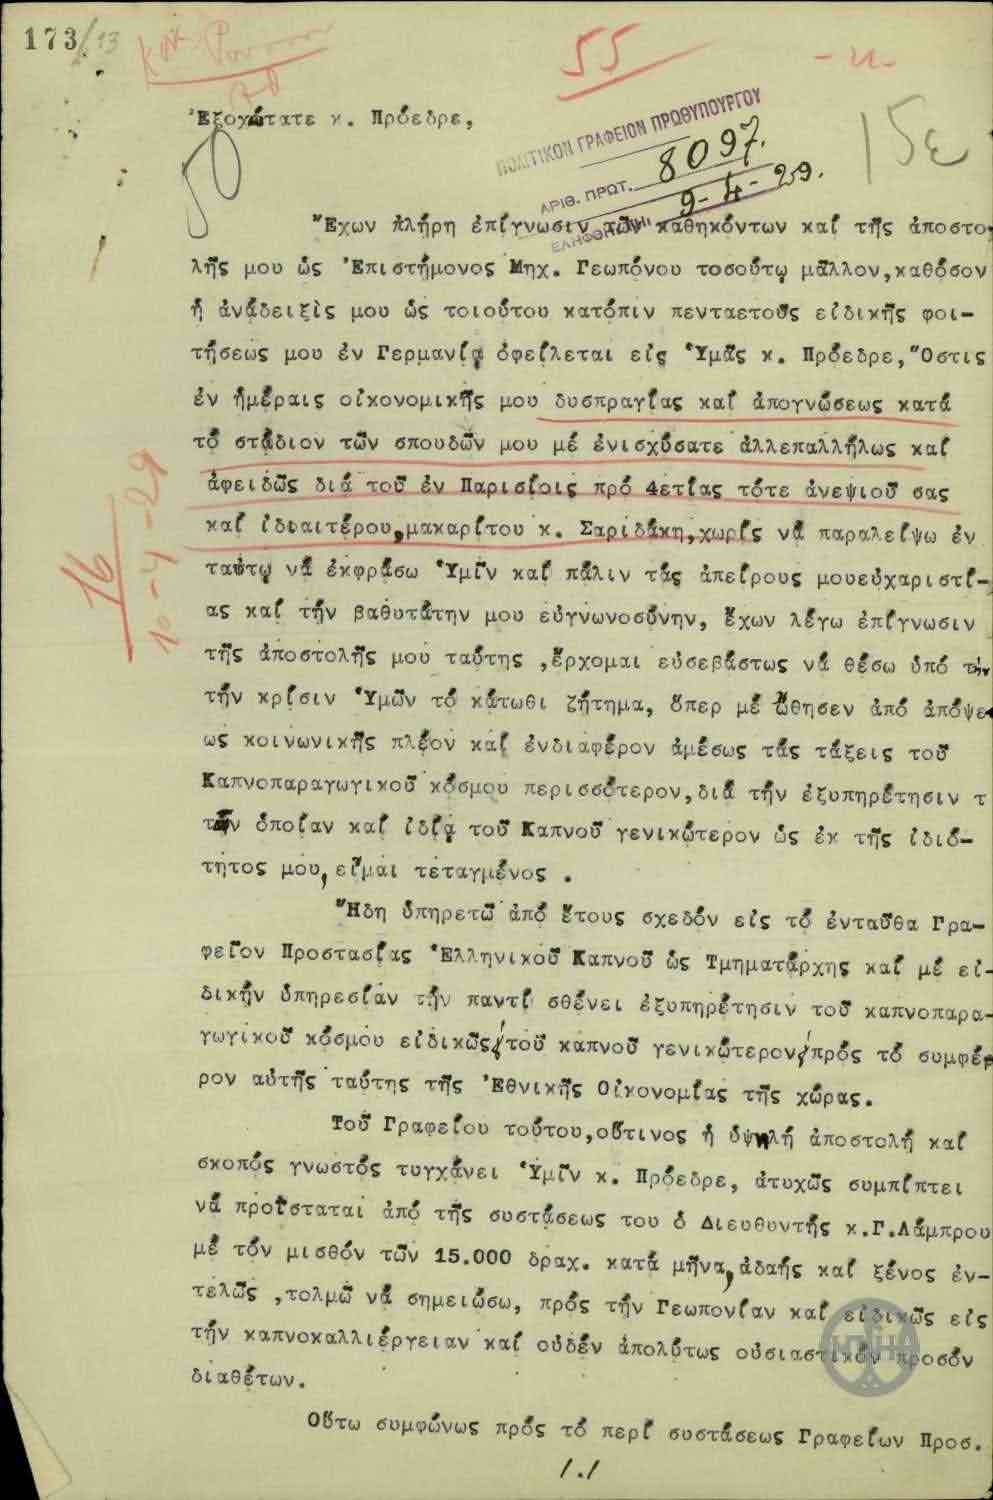 173/93
55
Ἐξοχώτατε κ. Πρόεδρε,
ΠΟΛΙΤΙΚΟΝ ΓΡΑΦΕΙΟΝ ΠΡΩΘΥΠΟΥΡΓΟΥ
ΑΡΙΘ. ΠΡΩΤ. 8097.
ΕΛΗΦΘΗ 9-4-29.
15ε
50
Ἔχων πλήρη ἐπίγνωσιν τῶν καθηκόντων καί τῆς ἀποστο-
λῆς μου ὡς Ἐπιστήμονος Μηχ. Γεωπόνου τοσούτῳ μᾶλλον, καθόσον
ἡ ἀνάδειξὶς μου ὡς τοιούτου κατόπιν πενταετοῦς εἰδικῆς φοι-
τήσεως μου ἐν Γερμανίᾳ ὀφείλεται εἰς Ὑμᾶς κ. Πρόεδρε, Ὅστις
ἐν ἡμέραις οἰκονομικῆς μου δυσπραγίας καί ἀπογνώσεως κατά
τό στάδιον τῶν σπουδῶν μου μέ ἐνισχύσατε ἀλλεπαλλήλως καί
ἀφειδῶς διά τοῦ ἐν Παρισίοις πρό 4ετίας τότε ἀνεψιοῦ σας
καί ἰδιαιτέρου, μακαρίτου κ. Σαριδάκη, χωρίς νά παραλείψω ἐν
ταύτῳ νά ἐκφράσω Ὑμῖν καί πάλιν τάς ἀπείρους μουεὐχαριστί-
ας καί τήν βαθυτάτην μου εὐγνωνοσύνην, ἔχων λέγω ἐπίγνωσιν
τῆς ἀποστολῆς μου ταύτης ,ἔρχομαι εὐσεβάστως νά θέσω ὑπό τήν
τήν κρίσιν Ὑμῶν τό κάτωθι ζήτημα, ὅπερ μέ ὤθησεν ἀπό ἀπόψε-
ως κοινωνικῆς πλέον καί ἐνδιαφέρον ἀμέσως τάς τάξεις τοῦ
Καπνοπαραγωγικοῦ κόσμου περισσότερον, διά τήν ἐξυπηρέτησιν τ
τῶν ὁποίαν καί ἰδίᾳ τοῦ Καπνοῦ γενικώτερον ὡς ἐκ τῆς ἰδιό-
τητος μου, εἶμαι τεταγμένος .
Ἤδη ὑπηρετῶ ἀπό ἔτους σχεδόν εἰς τό ἐνταῦθα Γρα-
φεῖον Προστασίας Ἑλληνικοῦ Καπνοῦ ὡς Τμηματάρχης καί μέ εἰ-
δικήν ὑπηρεσίαν τήν παντί σθένει ἐξυπηρέτησιν τοῦ καπνοπαρα-
γωγικοῦ κόσμου εἰδικῶς, τοῦ καπνοῦ γενικώτερον, πρός τό συμφέ-
ρον αὐτῆς ταύτης τῆς Ἐθνικῆς Οἰκονομίας τῆς χώρας.
Τοῦ Γραφείου τούτου, οὕτινος ἡ ὑψηλή ἀποστολή καί
σκοπός γνωστός τυγχάνει Ὑμῖν κ. Πρόεδρε, ἀτυχῶς συμπίπτει
νά προΐσταται ἀπό τῆς συστάσεως του ὁ Διευθυντής κ.Γ.Λάμπρου
μέ τόν μισθόν τῶν 15.000 δραχ. κατά μῆνα, ἀδαής καί ξένος ἐν-
τελῶς ,τολμῶ νά σημειώσω, πρός τήν Γεωπονίαν καί εἰδικῶς εἰς
τήν καπνοκαλλιέργειαν καί οὐδέν ἀπολύτως οὐσιαστικόν προσόν
διαθέτων.
Οὕτω συμφώνως πρός τό περί συστάσεως Γραφείων Προσ.
/./
16
10-4-29